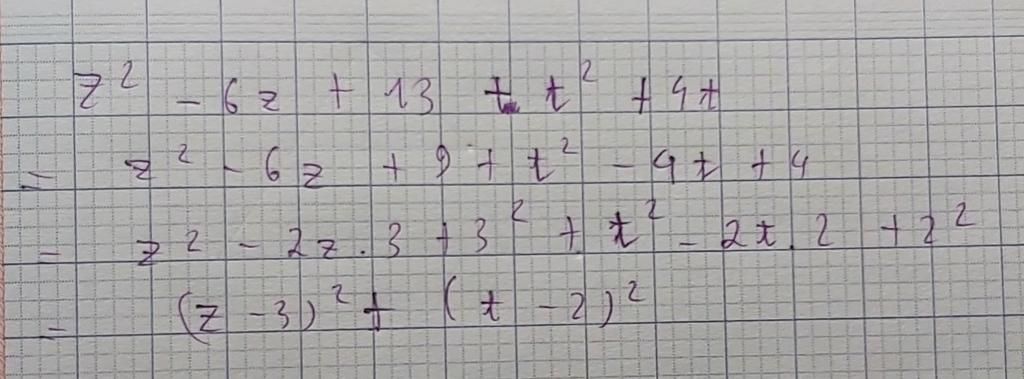 z² - 6z + 13 + t² + 4t
= z² - 6z + 9 + t² - 4t + 4
= z² - 2z.3 + 3² + t² - 2t.2 + 2²
= (z - 3)² + (t - 2)²